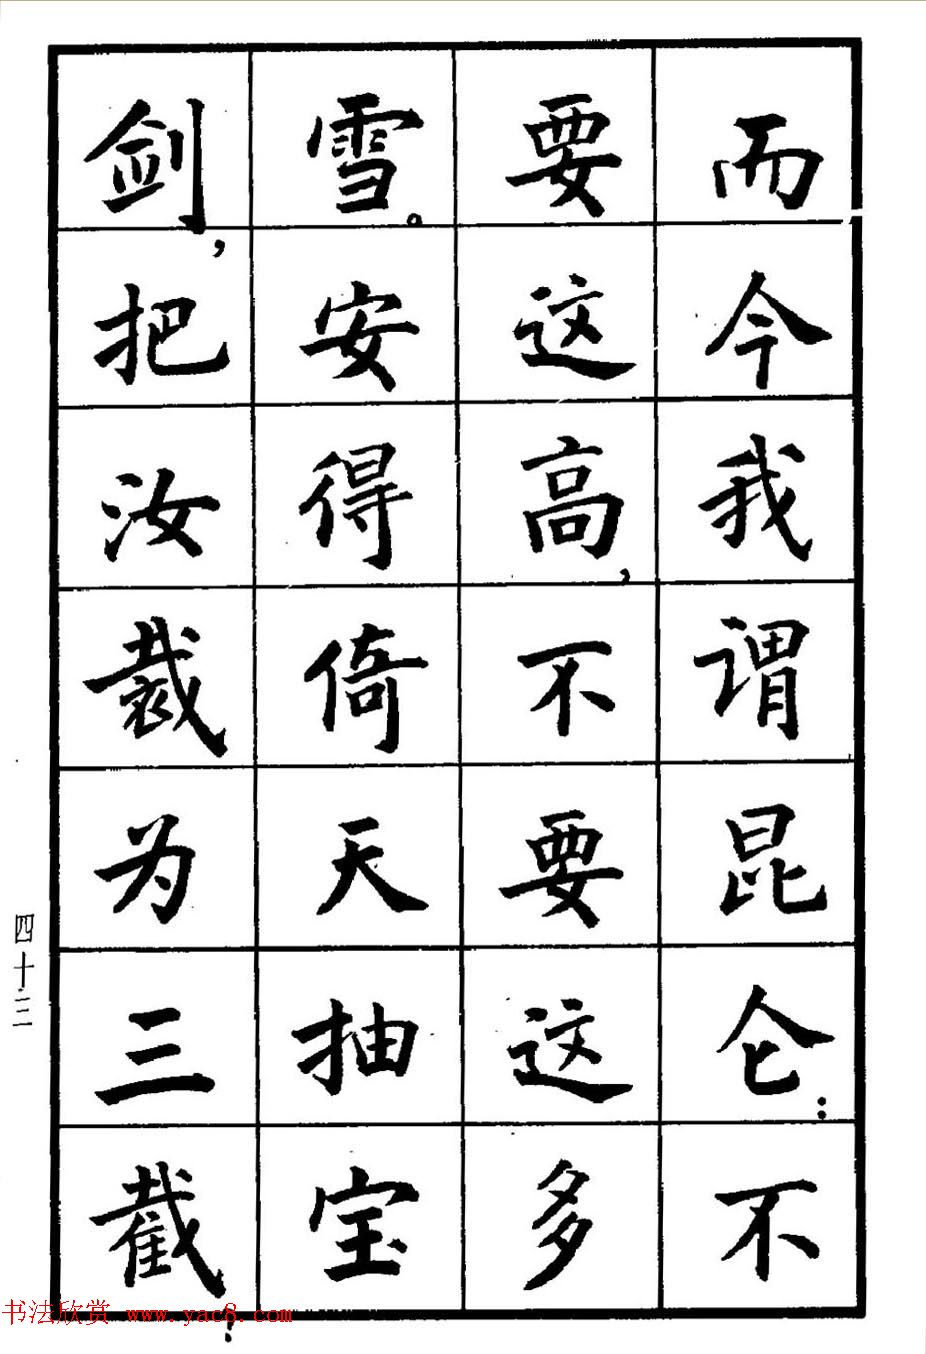 而今我谓昆仑：不
要这高，不要这多
雪。安得倚天抽宝
剑，把汝裁为三截！
四十三
书法欣赏 www.yac8.com